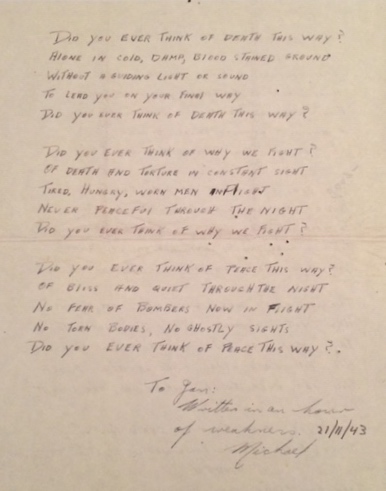 DID YOU EVER THINK OF DEATH THIS WAY?
ALONE IN COLD, DAMP, BLOOD STAINED GROUND
WITHOUT A GUIDING LIGHT OR SOUND
TO LEAD YOU ON YOUR FINAL WAY
DID YOU EVER THINK OF DEATH THIS WAY?
DID YOU EVER THINK OF WHY WE FIGHT?
OF DEATH AND TORTURE IN CONSTANT SIGHT
TIRED, HUNGRY, WORN MEN IN FLIGHT
NEVER PEACEFUL THROUGH THE NIGHT
DID YOU EVER THINK OF WHY WE FIGHT?
DID YOU EVER THINK OF PEACE THIS WAY?
OF BLISS AND QUIET THROUGH THE NIGHT
NO FEAR OF BOMBERS NOW IN FLIGHT
NO TORN BODIES, NO GHOSTLY SIGHTS
DID YOU EVER THINK OF PEACE THIS WAY?.
To
Written in an hour
of weakness. 21/11/43
Michael